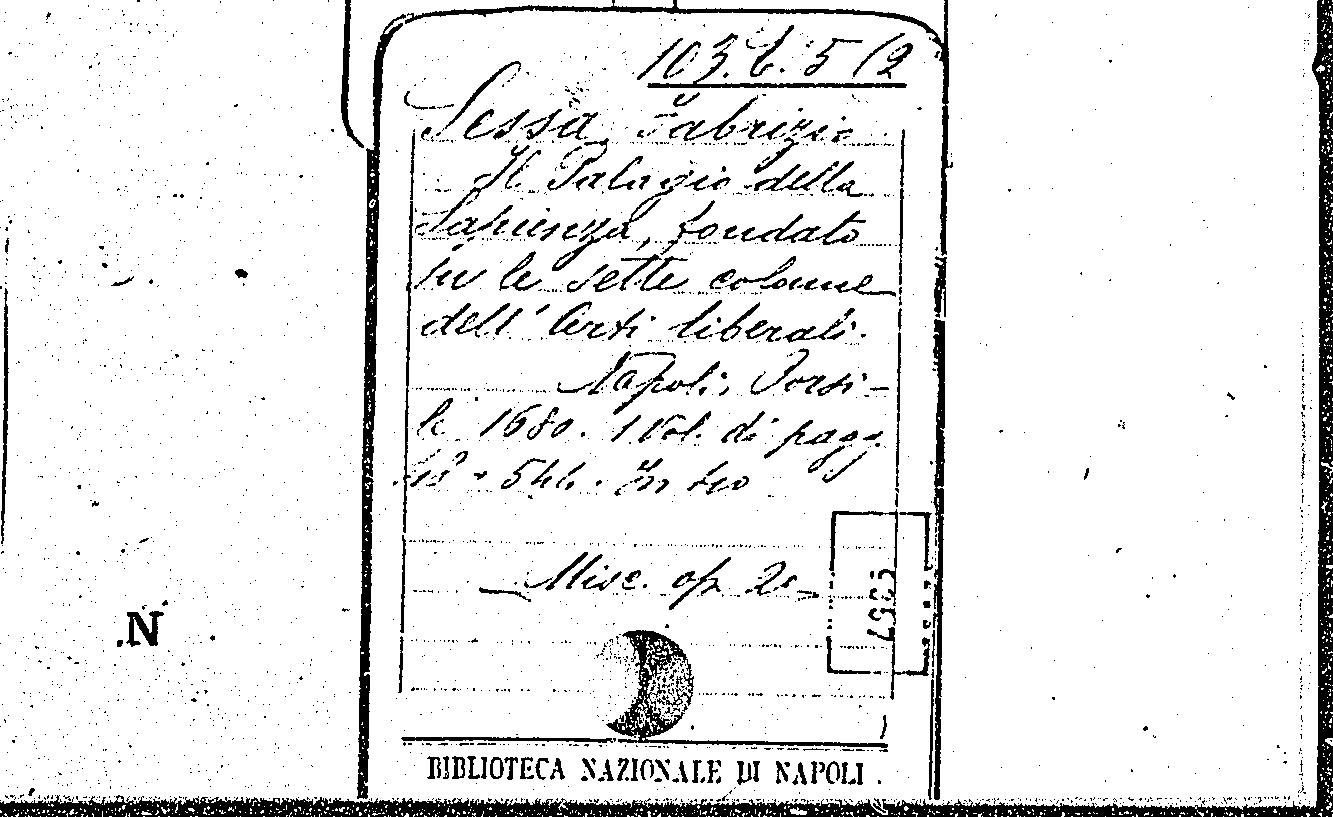 103. B. 5 (2
Sessa Fabrizio
Il Palagio della
Sapienza, fondato
su le sette colonne
dell' Arti liberali.
Napoli,
1680. 1 Vol. di pagg.
544. In
Misc. op 2a
BIBLIOTECA NAZIONALE DI NAPOLI .
.N